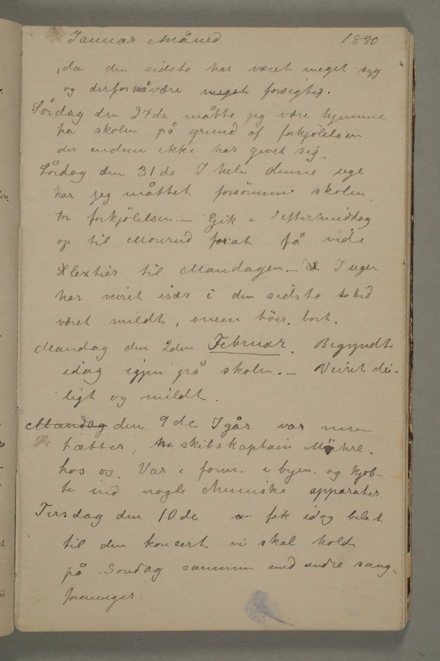 Januar Måned 1880
da den sidste har været meget syg
og derfor må være meget forsigtig.
Lördag den 24de måtte jeg være hjemme
fra skolen på grund af forkjölelsen
der endnu ikke har givet sig.
Lördag den 31de I hele denne uge
har jeg måttet forsömme skolen
for forkjölelsen. — Gik i eftermiddag
op til Monrud forat få vide
lextier til Mandagen — I ugen
har veiret især i den sidste tid
været mildt, sneen bort.
Mandag den 2den Februar. Begyndte
idag igjen på skolen. — Veiret dei-
ligt og mildt.
Mandag den 9de Igår var min
fætter, skibskaptain
hos os. Var i form. i byen og kjöb-
te ind nogle chemiske apparater.
Tirsdag den 10de fik idag billet
til den koncert vi skal holde
på Söndag sammen med andre sang-
foreninger.